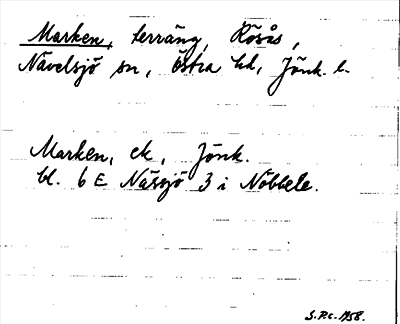 Marken, terräng, Rösås,
Nävelsjö sn, östra hd, Jönk. l.
Marken, ek, Jönk.
bl. 6 E Nässjö 3 i Nöbbele.
S.P.C. 1958.